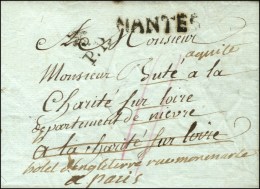 NANTES
A Monsieur
P.P.
Monsieur Buté a la
Charité sur loire
departement de nievre
a la charité sur loire
hotel d'angleterre rue
a paris